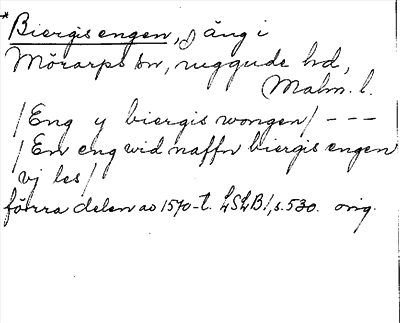 *Biergis engen, äng i
Mörarps sn, Luggude hd,
Malm. l.
/Eng y biergis wongen/ ---
/En eng wid naffn biergis engen
vj les/
förra delen av 1570-t. LSLB1, s. 530. orig.